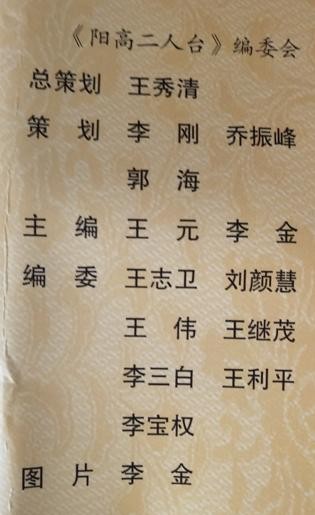 《阳高二人台》编委会
总策划 王秀清
策 划 李 刚 乔振峰
郭 海
主 编 王 元 李 金
编 委 王志卫 刘颜慧
王 伟 王继茂
李三白 王利平
李宝权
图 片 李 金